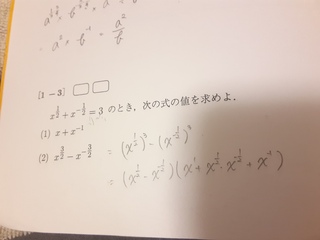 a² × b⁻¹ = a²/b
[1 −3]
x^{1/2} + x^{-1/2} = 3 のとき，次の式の値を求めよ．
(1) x + x⁻¹
(2) x^{3/2} − x^{-3/2} = (x^{1/2})³ − (x^{-1/2})³
= (x^{1/2} − x^{-1/2})(x¹ + x^{1/2} · x^{-1/2} + x⁻¹)